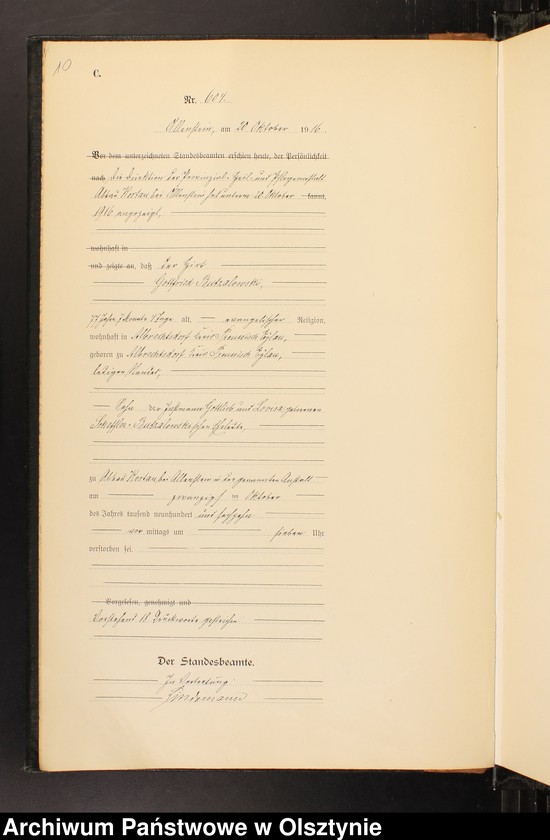 10
C.
Nr. 604.
Allenstein, am 20 Oktober 1916.
Vor dem unterzeichneten Standesbeamten erschien heute, der Persönlichkeit
nach die Direktion der Provinzial-Heil- und Pflegeanstalt
Abbau Kortau bei Allenstein hat unterm 20 Oktober kannt,
1916 angezeigt,
wohnhaft in
und zeigte an, daß der Hirt
Gottfried Butzalowski,
77 Jahre 7 Monate Tage alt, evangelischer Religion,
wohnhaft in Albrechtsdorf Kreis Preussisch Eylau,
geboren zu Albrechtsdorf Kreis Preussisch Eylau,
ledigen Standes,
Sohn der Gottlieb und Louise geborenen
Butzalowski'schen Eheleute,
zu Abbau Kortau bei Allenstein in der genannten Anstalt
am zwanzigsten Oktober
des Jahres tausend neunhundert und sechszehn
vor mittags um sieben Uhr
verstorben sei.
Vorgelesen, genehmigt und
Vorstehend 18 Druckworte gestrichen.
Der Standesbeamte.
In Vertretung
Lindemann
Archiwum Państwowe w Olsztynie